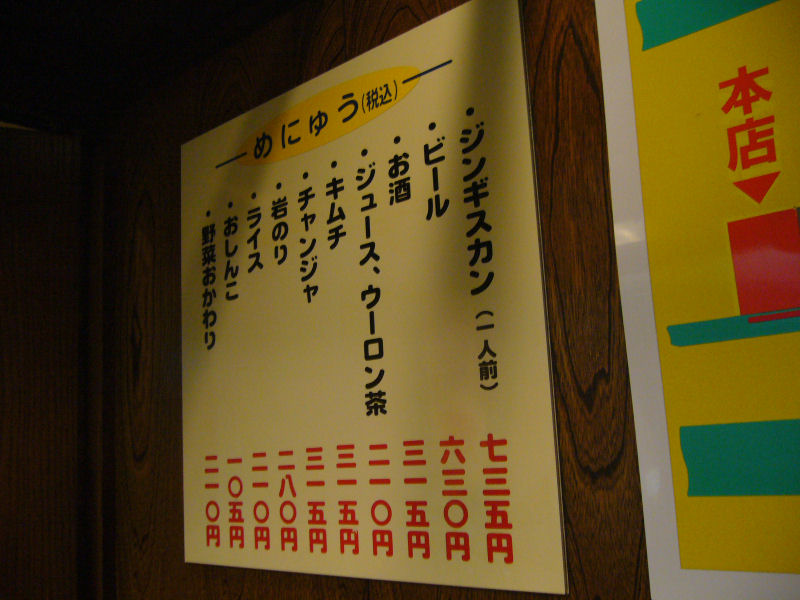 めにゅう(税込)
・ジンギスカン(一人前) 七三五円
・ビール 六三〇円
・お酒 三一五円
・ジュース、ウーロン茶 二一〇円
・キムチ 三一五円
・チャンジャ 三一五円
・岩のり 二八〇円
・ライス 二一〇円
・おしんこ 一〇五円
・野菜おかわり 二一〇円
本店